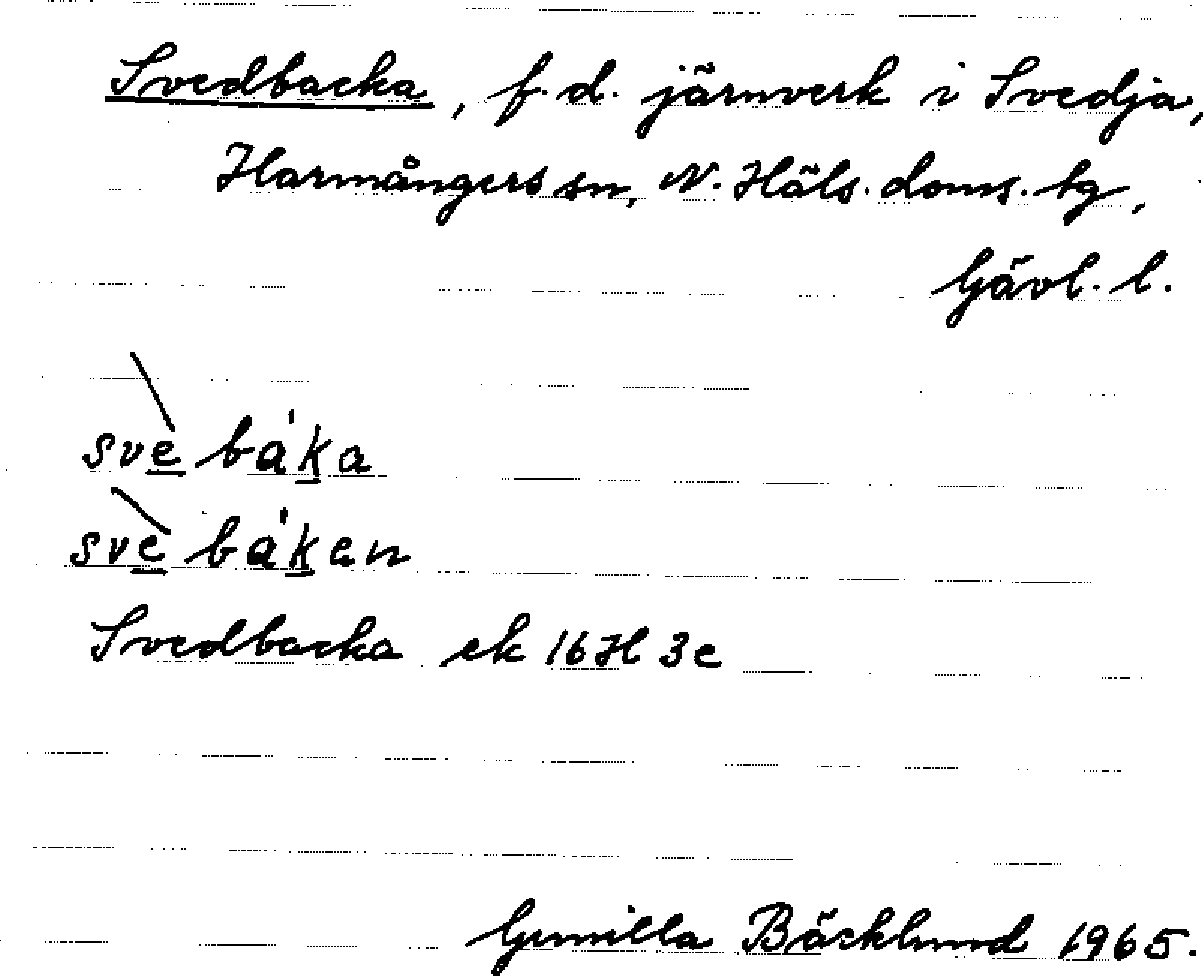 Svedbacka, f.d. järnverk i Svedja,
Harmångers sn, N. Häls. doms. tg,
Gävl. l.
svè bá̍ḵa
svè bá̍ḵen
Svedbacka ek 16H 3e
Gunilla Bäcklund 1965.